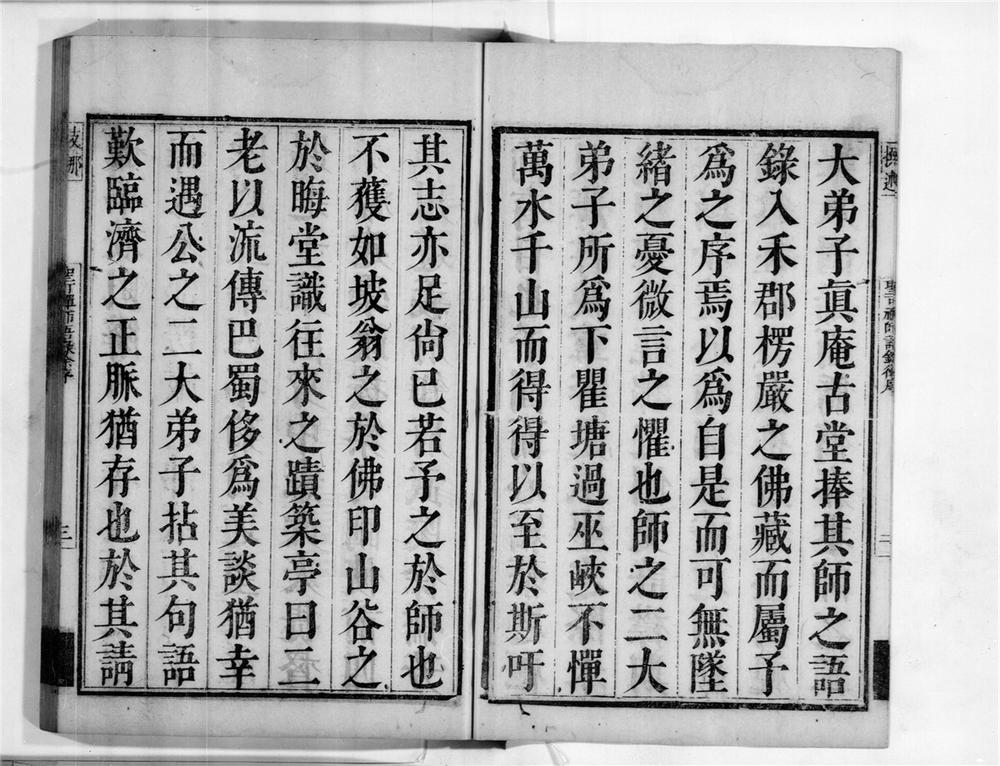 大弟子眞庵古堂捧其師之語
錄入禾郡楞嚴之佛藏而屬予
爲之序焉以爲自是而可無墜
緒之憂微言之懼也師之二大
弟子所爲下瞿塘過巫峽不憚
萬水千山而得得以至於斯吁
其志亦足尙已若予之於師也
不獲如坡翁之於佛印山谷之
於晦堂識往來之蹟築亭曰二
老以流傳巴蜀侈爲美談猶幸
而遇公之二大弟子拈其句語
歎臨濟之正脈猶存也於其請
二
三